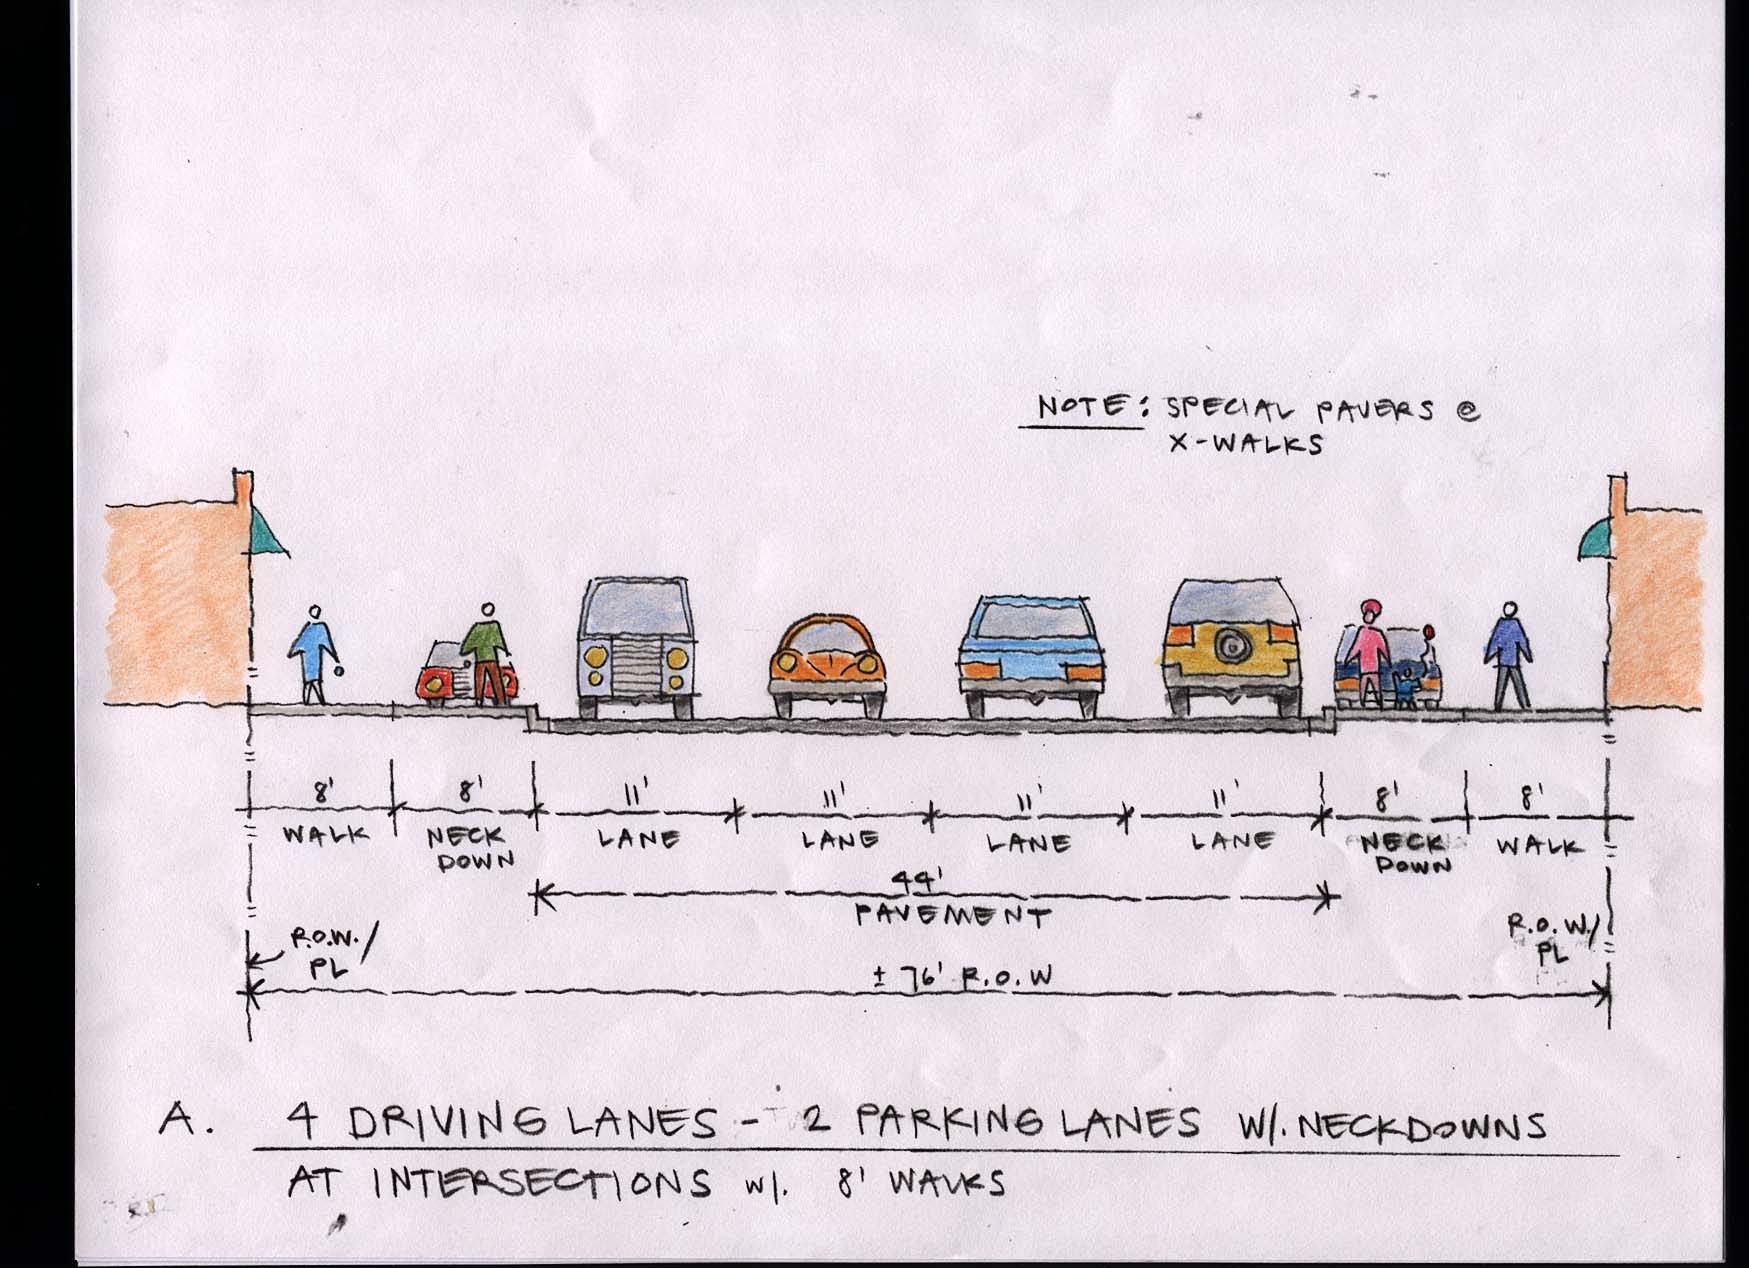 NOTE: SPECIAL PAVERS @
X-WALKS
8' 8' 11' 11' 11' 11' 8' 8'
WALK NECK LANE LANE LANE LANE NECK WALK
DOWN DOWN
44'
PAVEMENT
R.O.W./ R.O.W./
PL PL
± 76' R.O.W
A. 4 DRIVING LANES - 2 PARKING LANES W/. NECKDOWNS
AT INTERSECTIONS W/. 8' WALKS